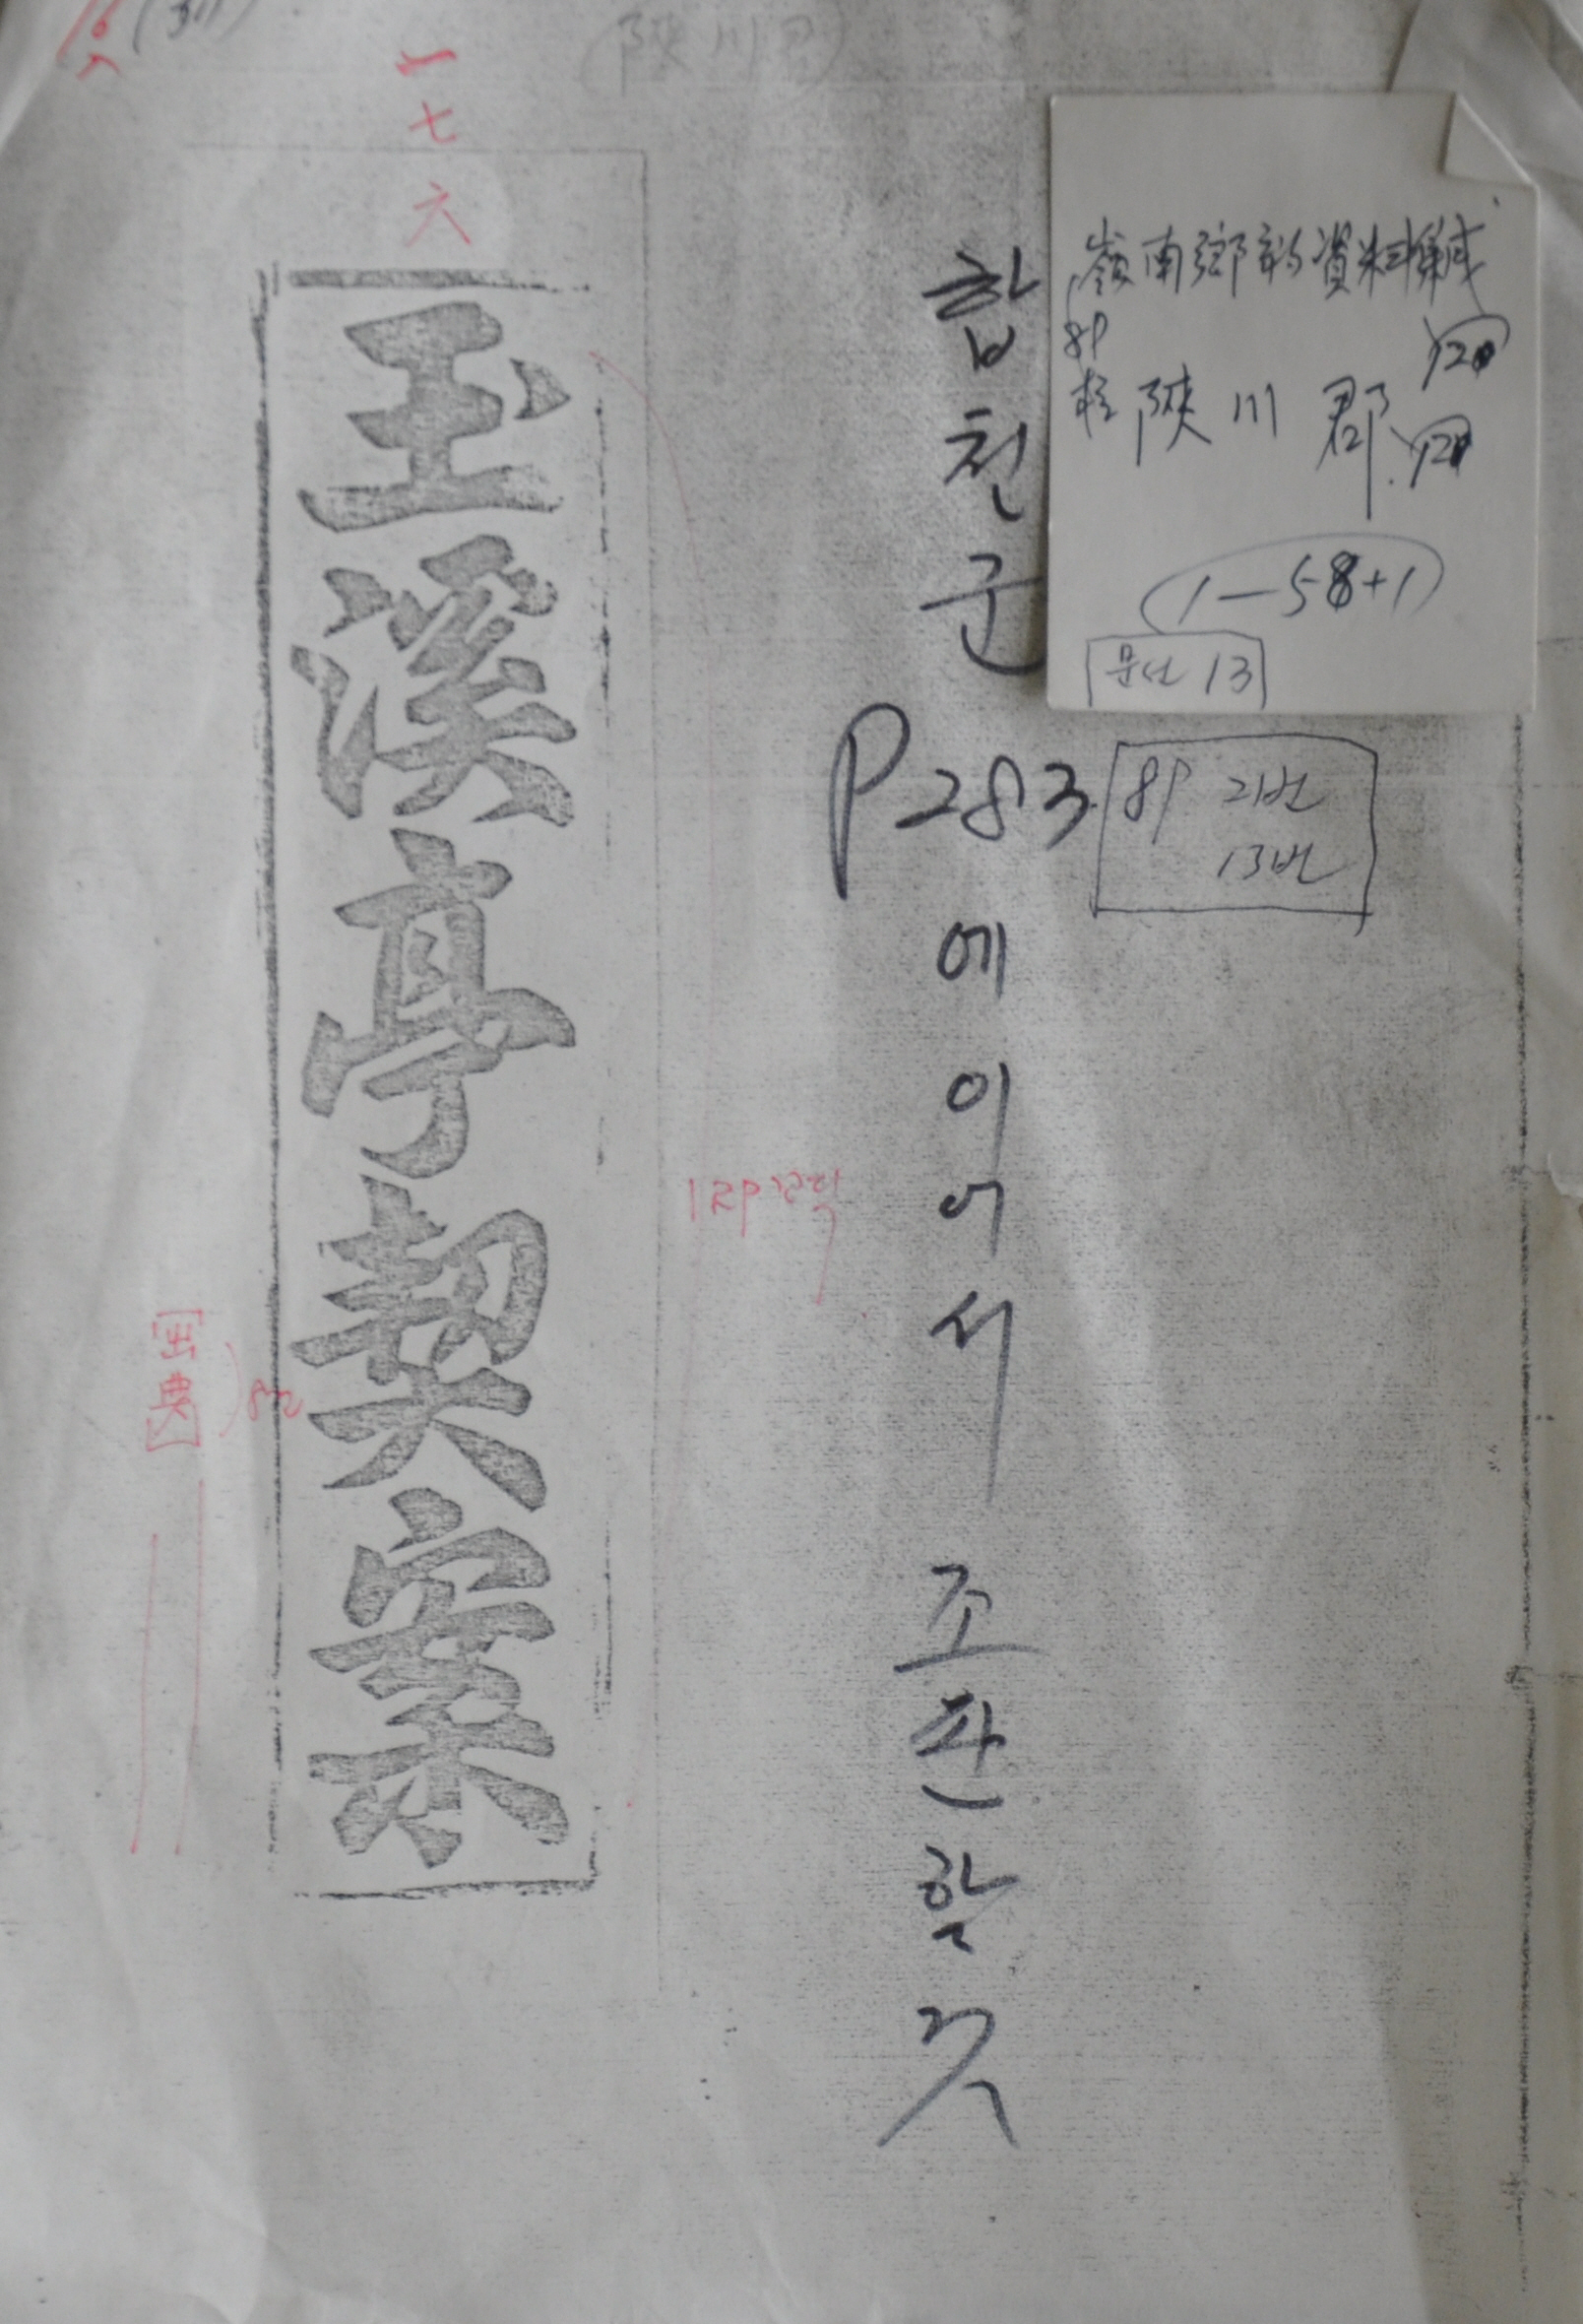 (陜川君)
一七六
玉溪亭契案
[出典]
합천군 P283에 이어서 조판할 것
嶺南鄕約資料集成
8P
陜川郡
1-58+1
문선 13
8P 21번
13번